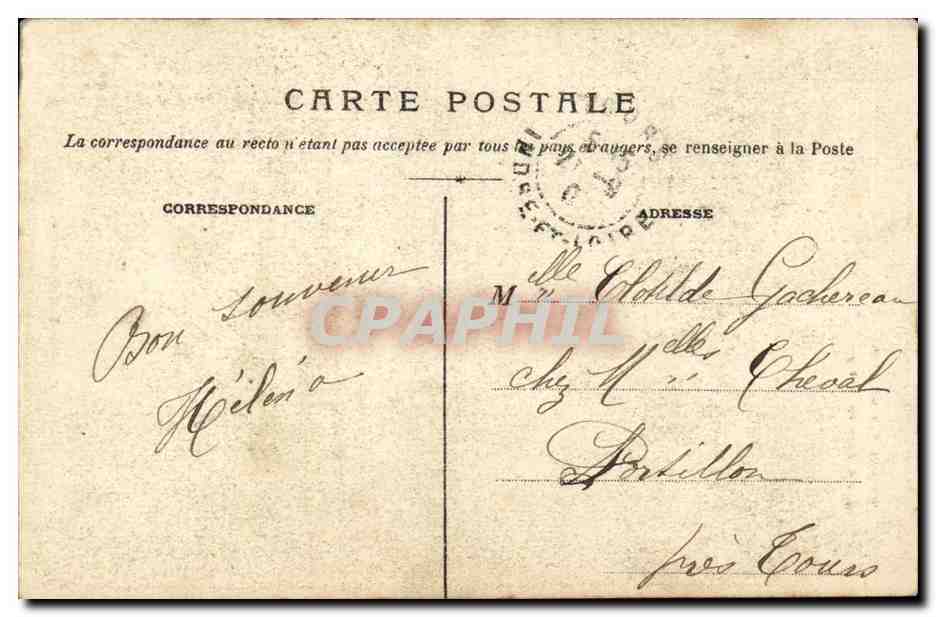 CARTE POSTALE
La correspondance au recto n'étant pas acceptée par tous les pays étrangers, se renseigner à la Poste
CORRESPONDANCE
ADRESSE
TOURS
INDRE-ET-LOIRE
Bon souvenir
Héléna
Melle Clotilde Gachereau
chez Melles Cheval
Portillon
près Tours
CPAPHIL